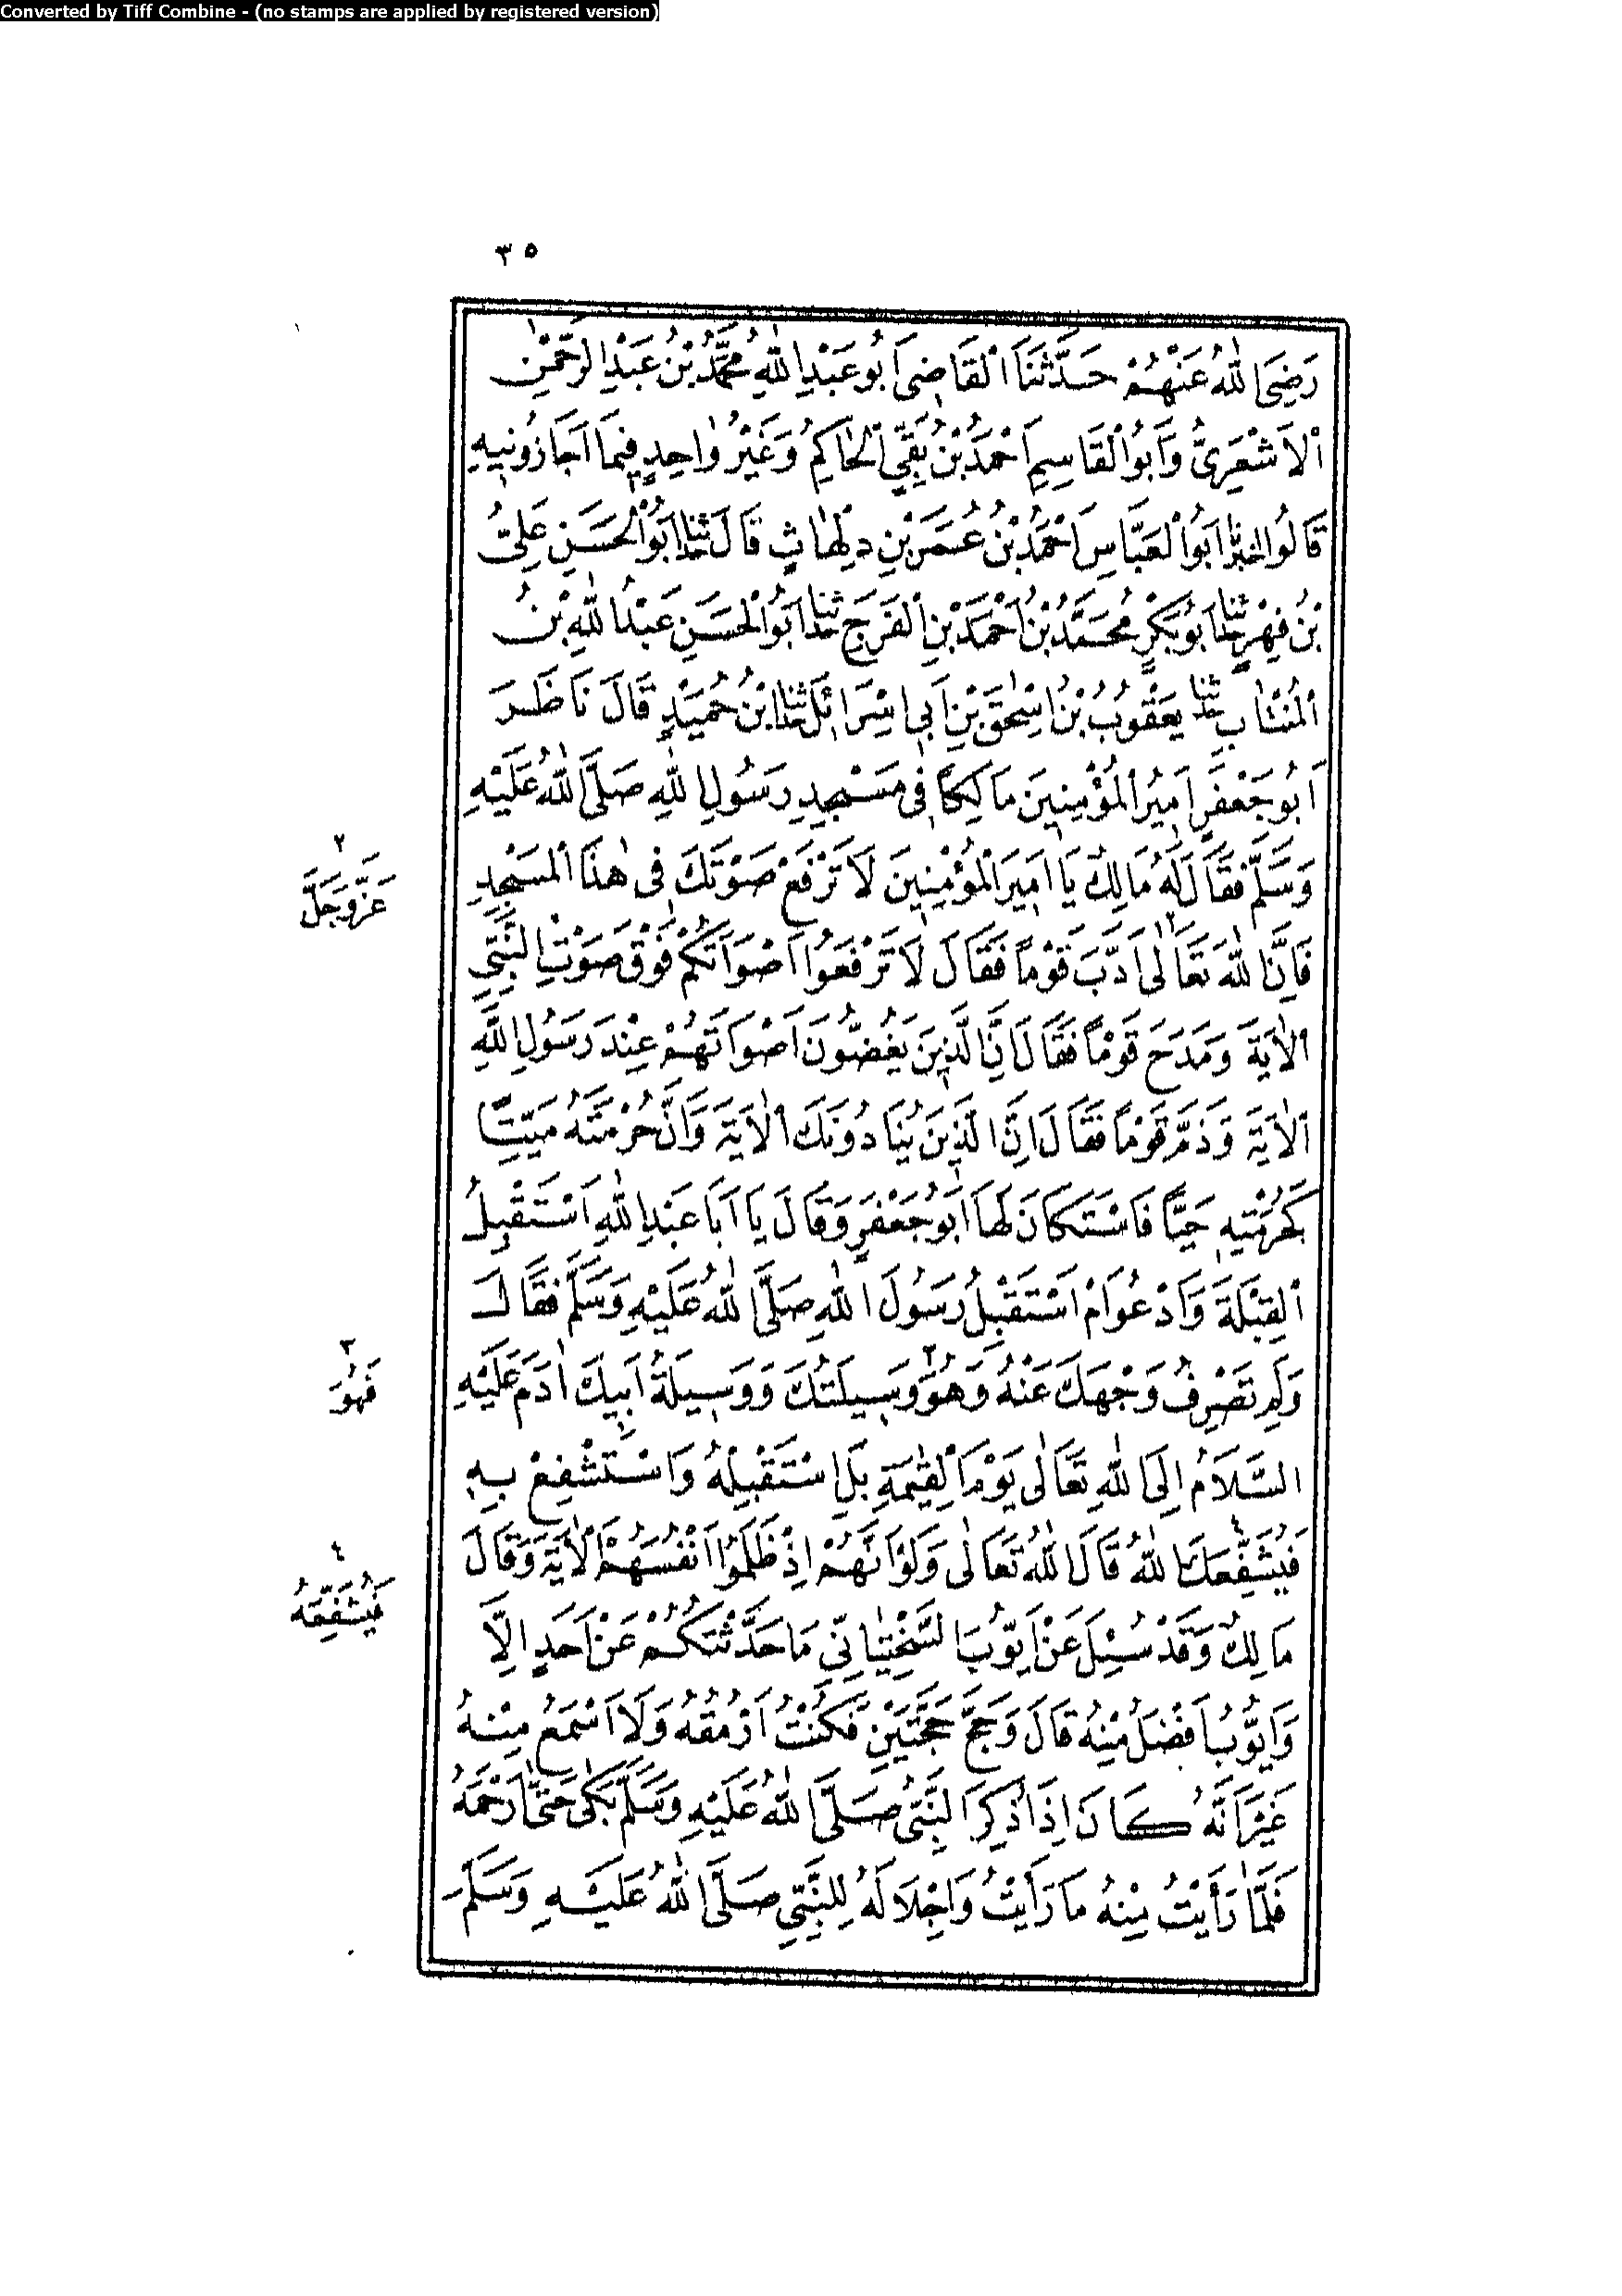 Converted by Tiff Combine - (no stamps are applied by registered version)
٣٥
رَضِيَ اللّٰهُ عَنْهُمْ حَدَّثَنَا الْقَاضِي اَبُو عَبْدِ اللّٰهِ مُحَمَّدُ بْنُ عَبْدِ الرَّحْمٰنِ
الْاَشْعَرِيُّ وَاَبُو الْقَاسِمِ اَحْمَدُ بْنُ بَقِيٍّ الْحَاكِمُ وَغَيْرُ وَاحِدٍ فِيمَا اَجَازُونِيهِ
قَالُوا اَخْبَرَنَا اَبُو الْعَبَّاسِ اَحْمَدُ بْنُ عُمَرَ بْنِ دِلْهَاثٍ قَالَ حَدَّثَنَا اَبُو الْحَسَنِ عَلِيُّ
بْنُ فِهْرٍ حَدَّثَنَا اَبُو بَكْرٍ مُحَمَّدُ بْنُ اَحْمَدَ بْنِ الْفَرَجِ حَدَّثَنَا اَبُو الْحَسَنِ عَبْدُ اللّٰهِ بْنُ
الْمُنْتَابِ حَدَّثَنَا يَعْقُوبُ بْنُ اِسْحٰقَ بْنِ اَبِي اِسْرَائِلَ حَدَّثَنَا ابْنُ حُمَيْدٍ قَالَ نَاظَرَ
اَبُو جَعْفَرٍ اَمِيرُ الْمُؤْمِنِينَ مَالِكًا فِي مَسْجِدِ رَسُولِ اللّٰهِ صَلَّى اللّٰهُ عَلَيْهِ
وَسَلَّمَ فَقَالَ لَهُ مَالِكٌ يَا اَمِيرَ الْمُؤْمِنِينَ لَا تَرْفَعْ صَوْتَكَ فِي هٰذَا الْمَسْجِدِ
٢
عَزَّ وَجَلَّ
فَاِنَّ اللّٰهَ تَعَالٰى ٢ اَدَّبَ قَوْمًا فَقَالَ لَا تَرْفَعُوا اَصْوَاتَكُمْ فَوْقَ صَوْتِ النَّبِيِّ
الْاٰيَةَ وَمَدَحَ قَوْمًا فَقَالَ اِنَّ الَّذِينَ يَغُضُّونَ اَصْوَاتَهُمْ عِنْدَ رَسُولِ اللّٰهِ
الْاٰيَةَ وَذَمَّ قَوْمًا فَقَالَ اِنَّ الَّذِينَ يُنَادُونَكَ الْاٰيَةَ وَاِنَّ حُرْمَتَهُ مَيِّتًا
كَحُرْمَتِهِ حَيًّا فَاسْتَكَانَ لَهَا اَبُو جَعْفَرٍ وَقَالَ يَا اَبَا عَبْدِ اللّٰهِ اَسْتَقْبِلُ
الْقِبْلَةَ وَاَدْعُو اَمْ اَسْتَقْبِلُ رَسُولَ اللّٰهِ صَلَّى اللّٰهُ عَلَيْهِ وَسَلَّمَ فَقَالَ
وَلِمَ تَصْرِفُ وَجْهَكَ عَنْهُ وَهُوَ ٣ وَسِيلَتُكَ وَوَسِيلَةُ اَبِيكَ اٰدَمَ عَلَيْهِ
٣
فَهُوَ
السَّلَامُ اِلَى اللّٰهِ تَعَالٰى يَوْمَ الْقِيٰمَةِ بَلِ اسْتَقْبِلْهُ وَاسْتَشْفِعْ بِهِ
فَيُشَفِّعَكَ ٤ اللّٰهُ قَالَ اللّٰهُ تَعَالٰى وَلَوْ اَنَّهُمْ اِذْ ظَلَمُوا اَنْفُسَهُمْ الْاٰيَةَ وَقَالَ
٤
فَيُشَفِّعُهُ
مَالِكٌ وَقَدْ سُئِلَ عَنْ اَيُّوبَ السَّخْتِيَانِيِّ مَا حَدَّثْتُكُمْ عَنْ اَحَدٍ اِلَّا
وَاَيُّوبُ اَفْضَلُ مِنْهُ قَالَ وَحَجَّ حَجَّتَيْنِ فَكُنْتُ اَرْمُقُهُ وَلَا اَسْمَعُ مِنْهُ
غَيْرَ اَنَّهُ كَانَ اِذَا ذُكِرَ النَّبِيُّ صَلَّى اللّٰهُ عَلَيْهِ وَسَلَّمَ بَكٰى حَتّٰى اَرْحَمَهُ
فَلَمَّا رَاَيْتُ مِنْهُ مَا رَاَيْتُ وَاِجْلَالَهُ لِلنَّبِيِّ صَلَّى اللّٰهُ عَلَيْهِ وَسَلَّمَ